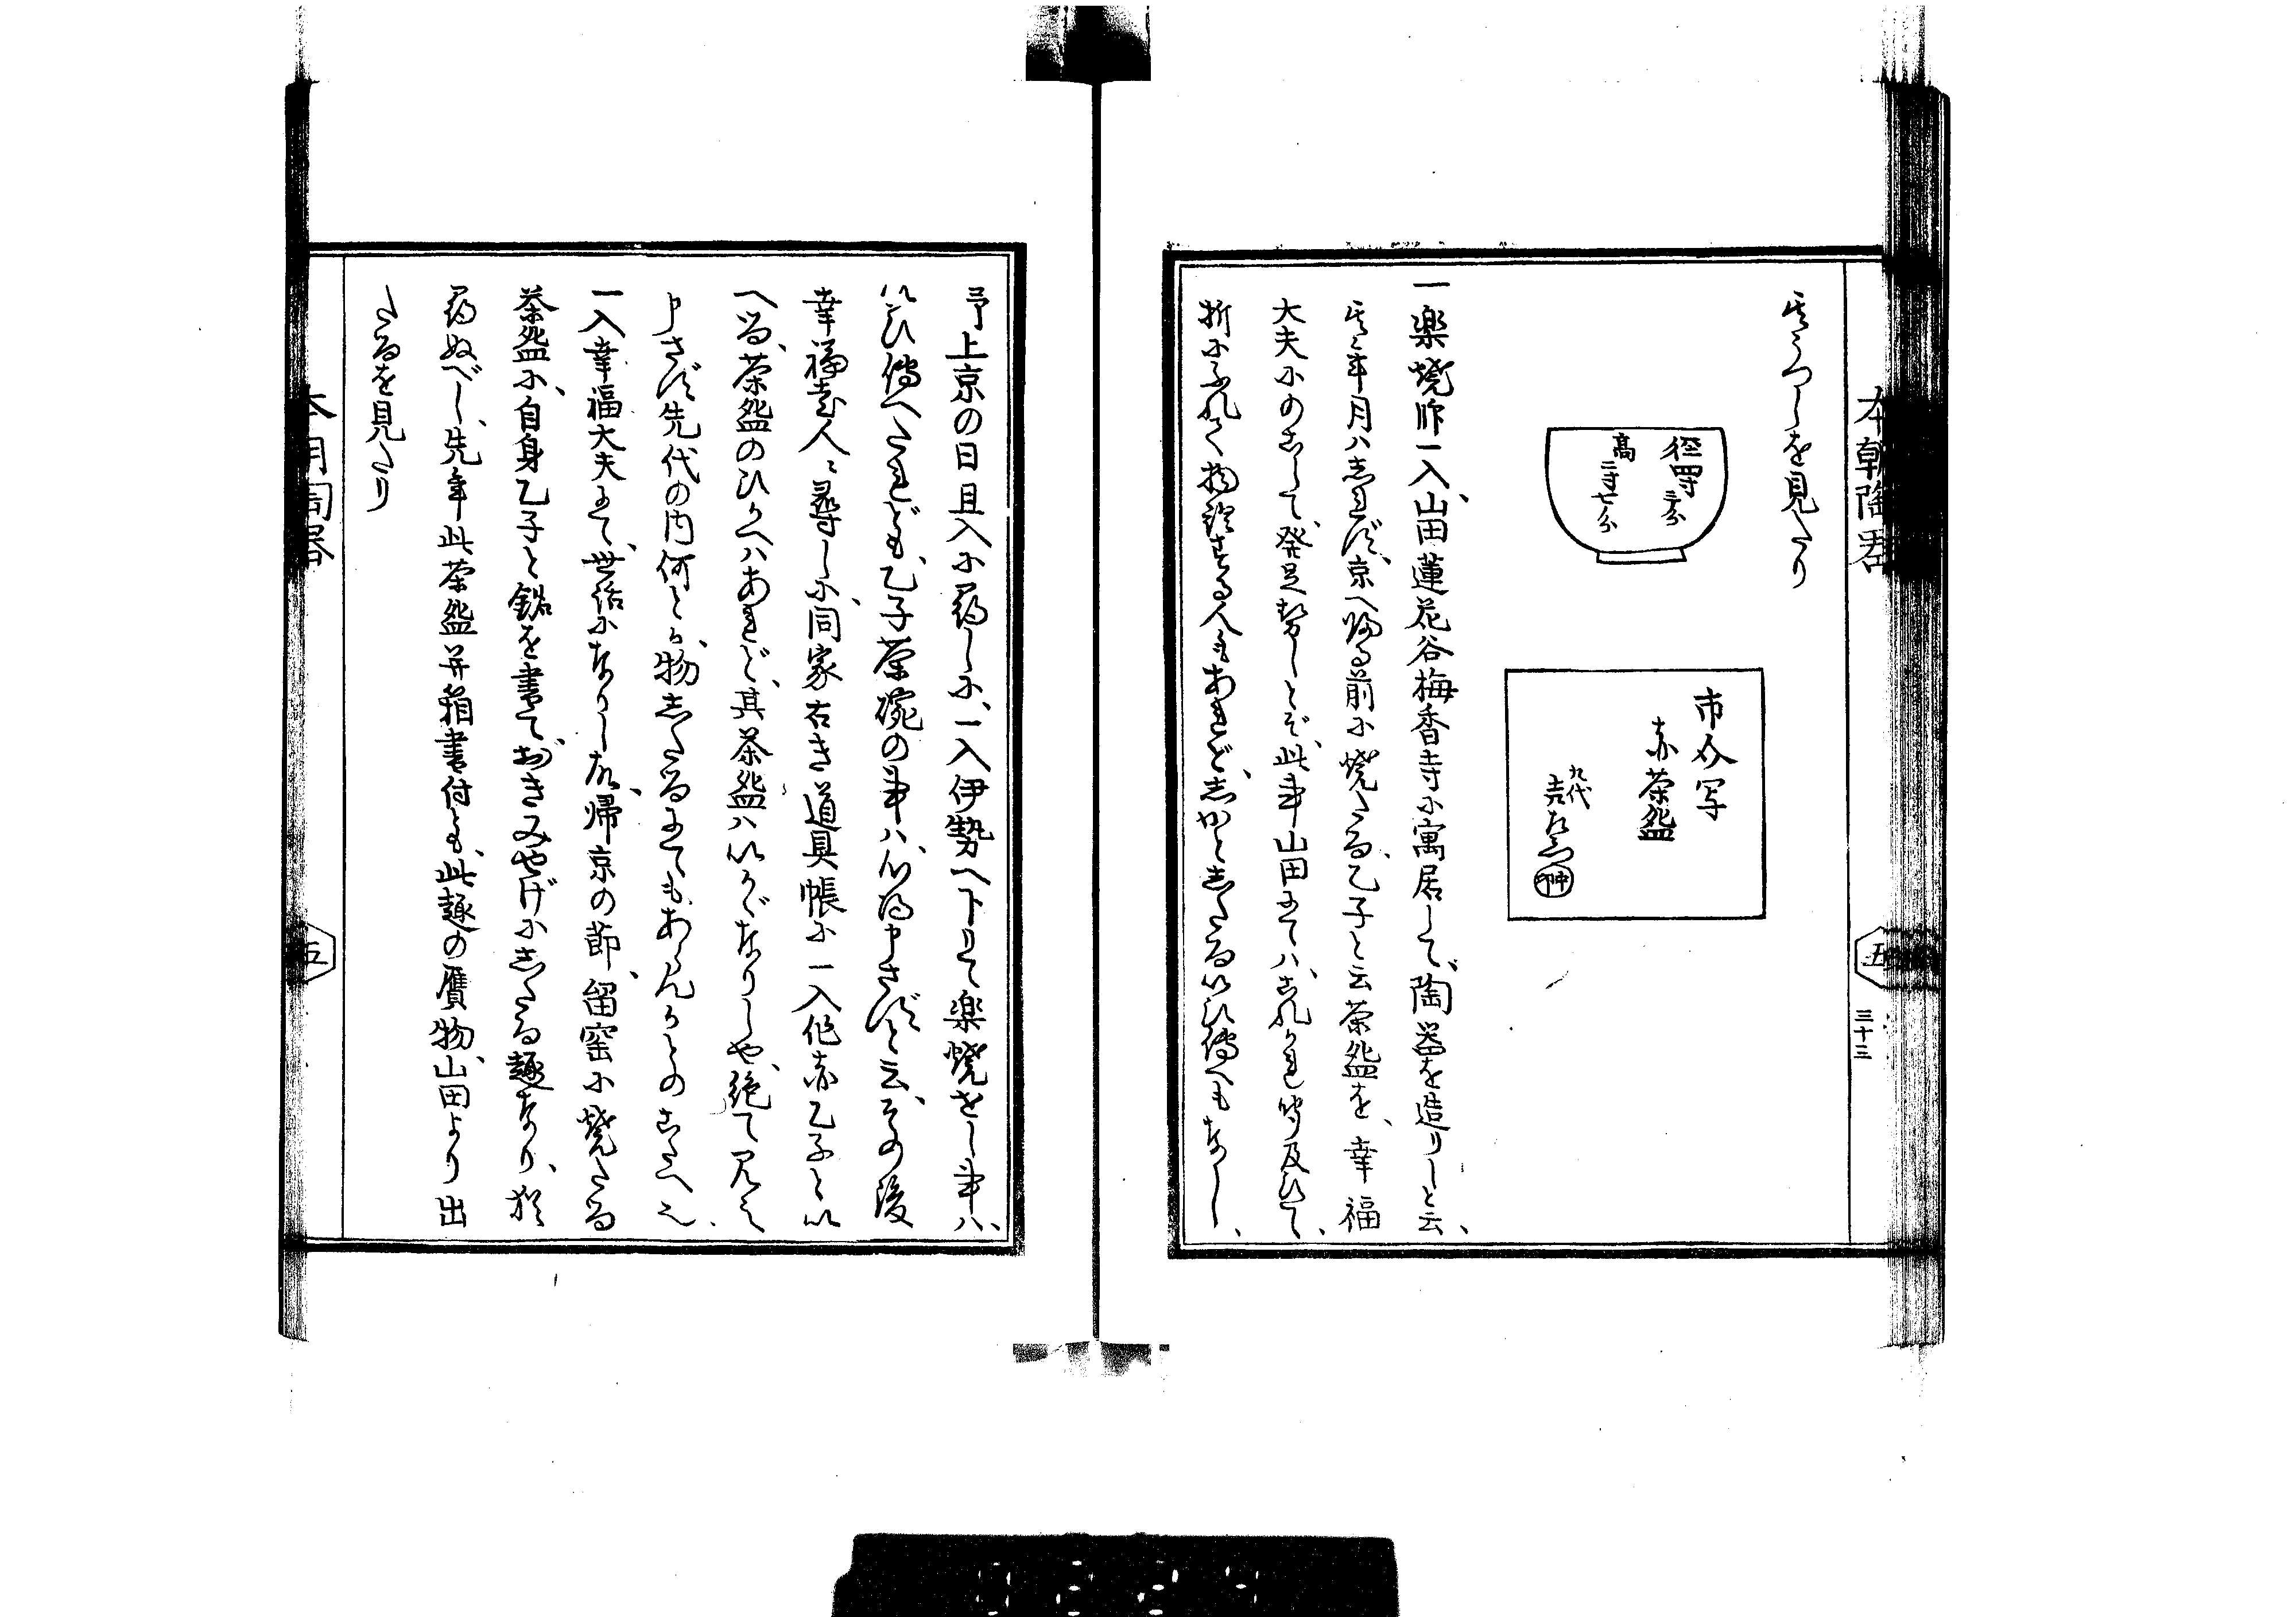 本朝陶器
五
三十三
其うつしを見たり
径四寸三分
高二寸七分
市女写
赤茶盌
九代
吉左衛門
一楽焼師一入、山田蓮花谷梅香寺に寓居して、陶器を造りしと云、
其年月ハしれず、京へ帰る前に焼たる、乙子と云茶盌を、幸福
大夫にのこして、発足せしとぞ、此事山田にてハ、これかれ聞及ひて、
折にふれて物語する人もあれど、しかとしたるいひ傳へもなし、
予上京の日旦入に尋しに、一入伊勢へ下りて楽焼せし事ハ、
いひ傳へたれども、乙子茶碗の事ハ、心得申さずと云、その後
幸福出入人に尋しに、同家古き道具帳に一入作赤乙子とい
へる、茶盌のひかへハあれど、其茶盌ハいかゞなりしや、絶て見え
申さず、先代の内何とか、物したるにてもあらんかとのこたへ也、
一入幸福大夫にて、世話になりし故、帰京の節、留窯に焼たる
茶盌に、自身乙子と銘を書て、おきみやげにしたる趣なり、於
尋ぬべし、先年此茶盌并箱書付とも、此趣の贋物、山田より出
たるを見たり
五